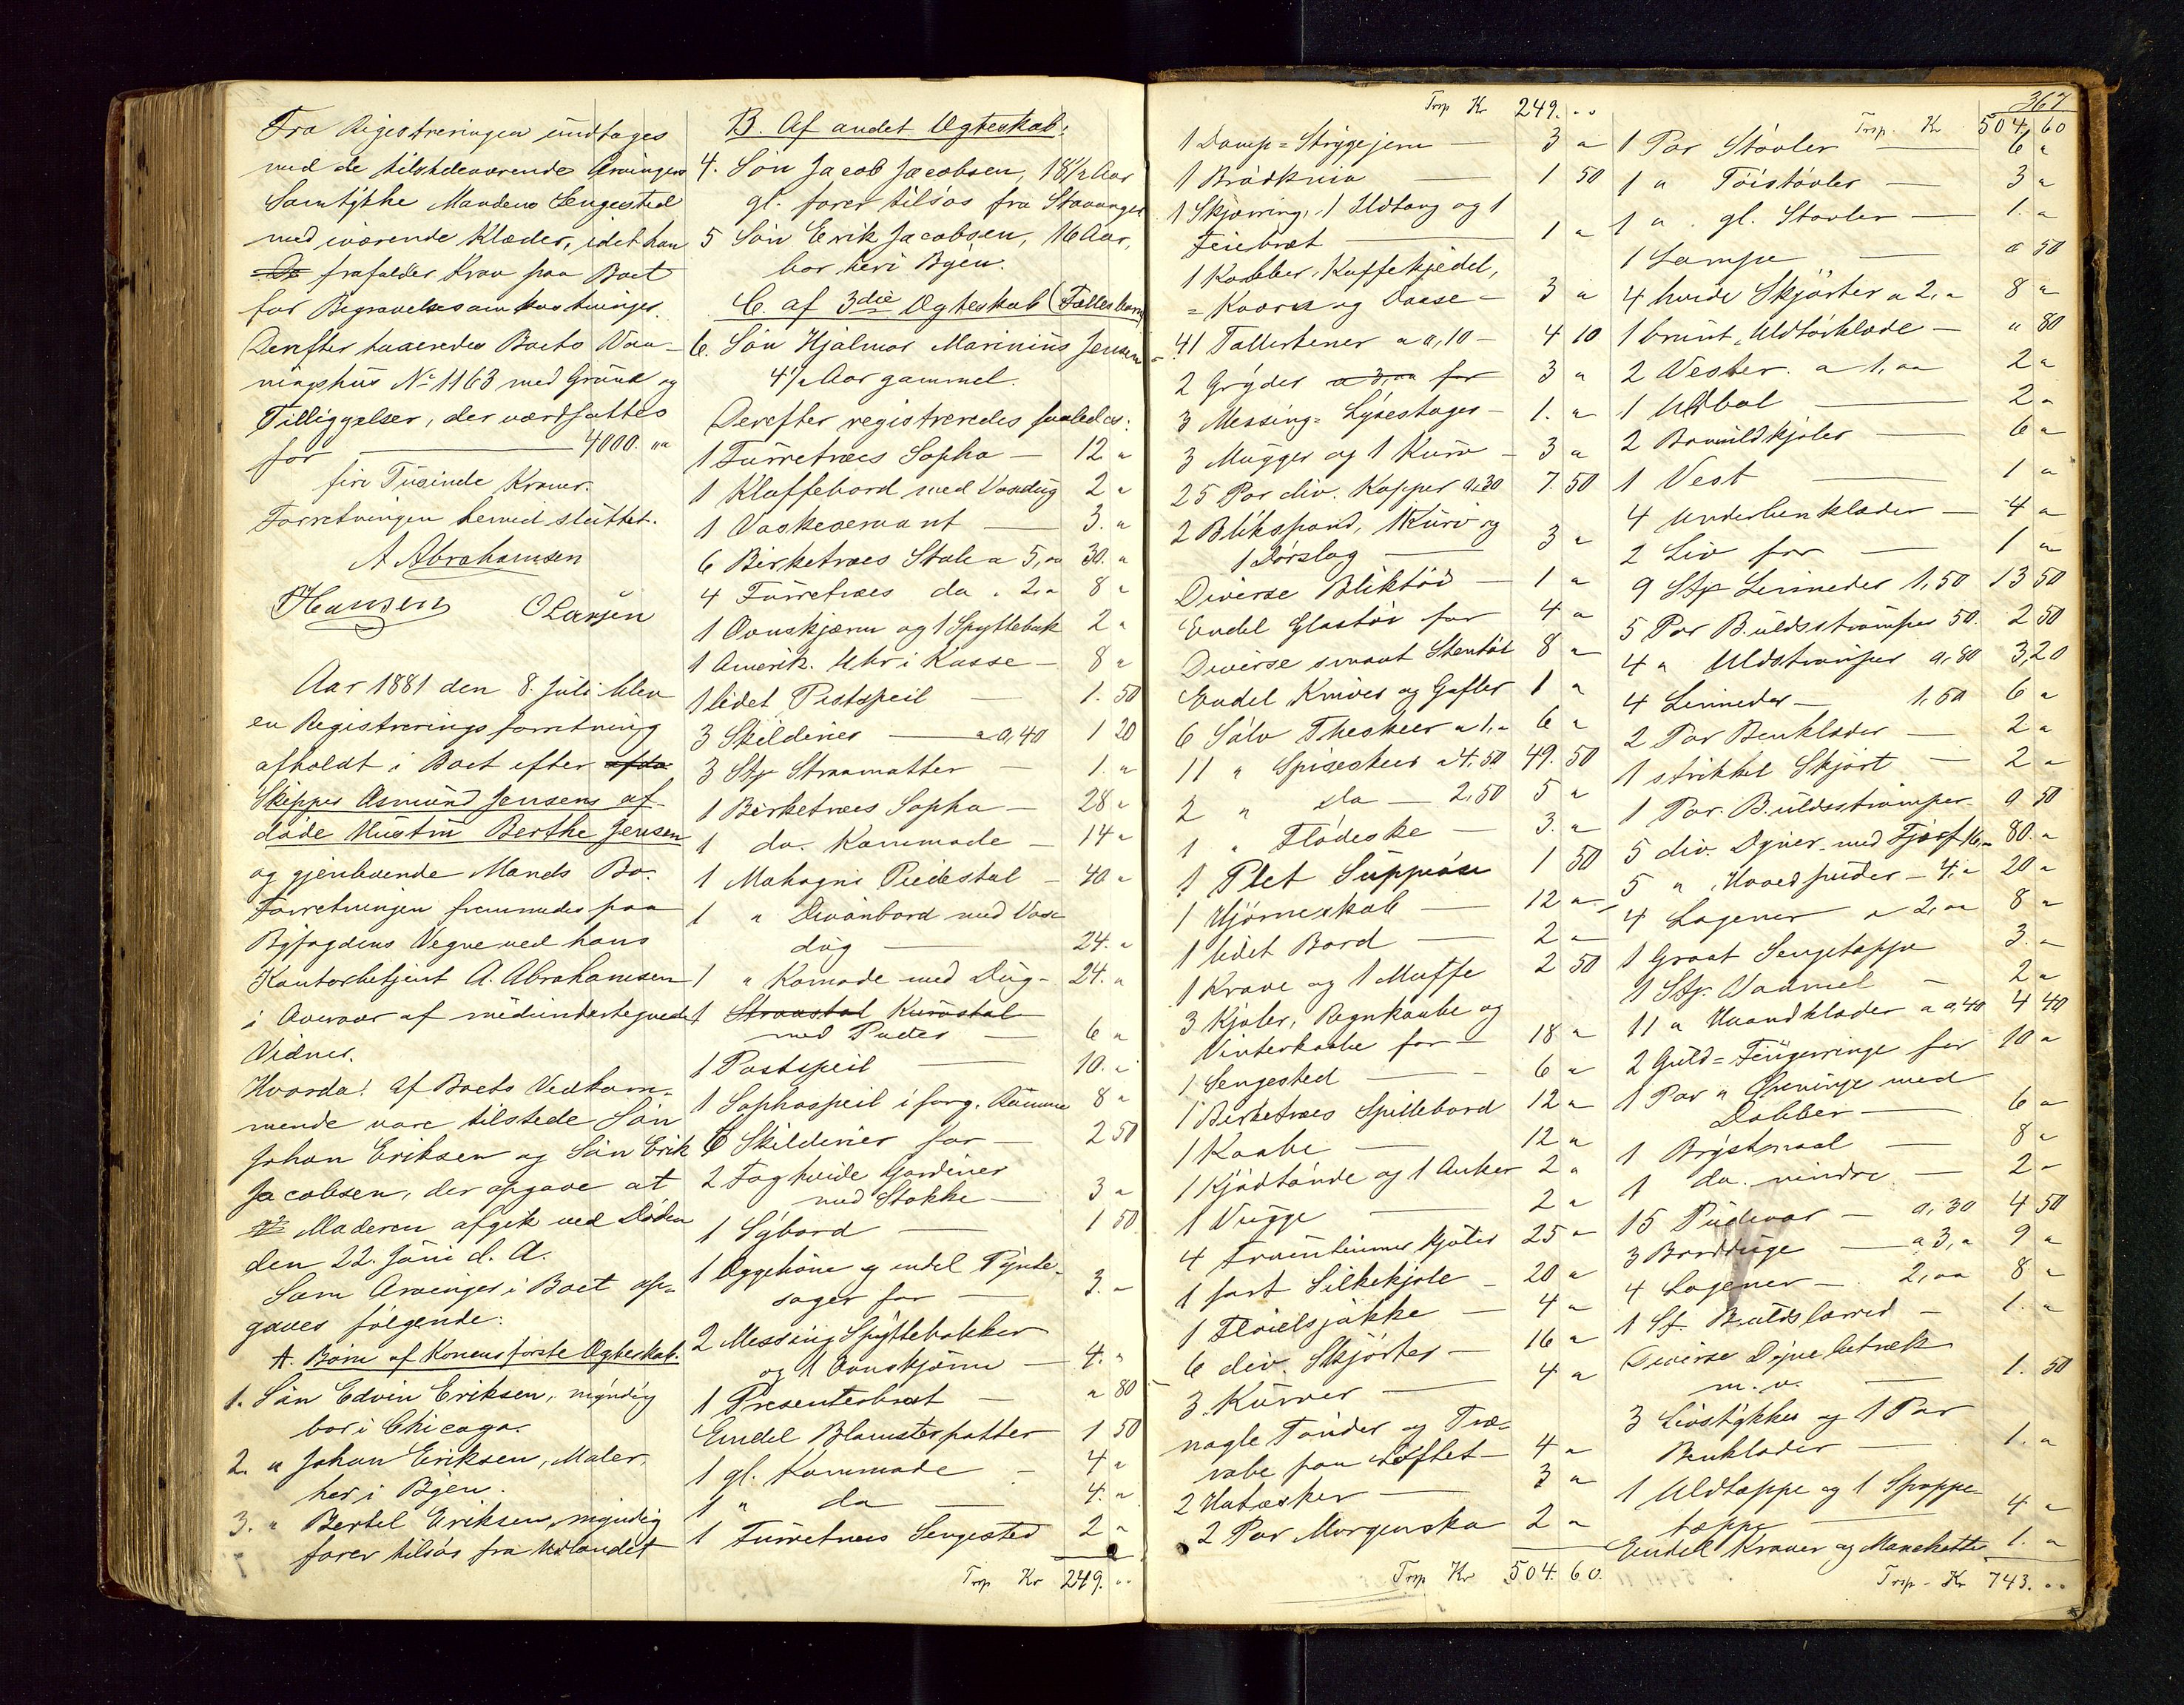 Fra Registreringen undtages
med de tilstedeværende Arvingers
Samtykke Mandens Sengested
med iværende Klæder, idet han
frafalder Krav paa Boet
for Begravelsesomkostninger.
Derefter taxeredes Boets Vaa-
ningshus No 1163 med Grund og
Tilliggelser, der værdsattes
for — 4000. "
fire Tusinde Kroner.
Forretningen hermed sluttet.
A Abrahamsen
Hansen OLarsen
Aar 1881 den 8. Juli blev
en Registreringsforretning
afholdt i Boet efter afdø
Skipper Asmund Jensens af-
døde Hustru Berthe Jensen
og gjenlevende Mands Bo.
Forretningen fremmedes paa
Byfogdens Vegne ved hans
Kontorbetjent A. Abrahamsen
i Overvær af medundertegnede
Vidner.
Hvorda! Af Boets Vedkom-
mende vare tilstede Søn
Johan Eriksen og Søn Erik
Jacobsen, der opgave at
Moderen afgik ved Døden
den 22. Juni d. A.
Som Arvinger i Boet op-
gaves følgende:
A. Børn af Konens første Ægteskab.
1. Søn Edvin Eriksen, myndig
bor i Chicago.
2. " Johan Eriksen, Maler,
her i Byen.
3. " Bertel Eriksen, myndig
farer tilsøs fra Udlandet
B. Af andet Ægteskab:
4. Søn Jacob Jacobsen, 18 1/2 Aar
gl. farer tilsøs fra Stavanger
5 Søn Erik Jacobsen, 16 Aar,
bor her i Byen.
C. af 3die Ægteskab (Fællesbarn)
6. Søn Hjalmar Marinius Jensen
4 1/2 Aar gammel.
Derefter registreredes saaledes:
1 Furretræes Sopha — 12 "
1 Klaffebord med Voxdug 2 "
1 Vaskeservant — 3. "
6 Birketræes Stole a 5,00 30. "
4 Furretræes do " 2," 8 "
1 Ovnskjærm og 1 Spyttebak 2 "
1 Amerik. Uhr i Kasse — 8 "
1 lidet Postspeil — 1. 50
3 Skilderier — a 0,40 1 20
3 Stkr Straamatter — 1. "
1 Birketræes Sopha — 28 "
1 do. Kommode — 14 "
1 Mahogni Piedestal — 40 "
1 " Divanbord med Vox-
dug — 24. "
1 " Komode med Dug - 24. "
1 Straastol Kurvstol
med Puder — 6 "
1 Postspeil — 10. "
1 Sophaspeil i forg. Ramme 8 "
6 Skilderier for — 2 50
2 Fag hvide Gardiner
med Stokke — 3 "
1 Sybord — 1 50
1 Æggehøne og endel Pynte-
sager for — 3. "
2 Messing Spyttebakker
og 1 Ovnskjærm — 4. "
1 Presenterbræt — " 80
Endel Blomsterpotter 1 50
1 gl. Kommode — 4 "
1 " do — 4. "
1 Furretræes Sengested 2 "
Trsp Kr 249. ..
Trsp Kr 249. ..
1 Damp=Strygejern — 3 "
1 Brødkniv — 1 50
1 Skjærring, 1 Ildtang og 1
Feiebræt — 1 "
1 Kobber, Kaffekjedel,
= Kværn og Daase — 3 "
41 Tallerkener a 0,10 — 4 10
2 Gryder a 3,00 for 3 "
3 Messing=Lysestager — 1. "
3 Mugger og 1 Kurv — 3 "
25 Par div. Kopper a,30 7. 50
2 Blikspand, 1 Kurv og
1 Dørslag — 3 "
Diverse Bliktøi — 1 "
Endel Glastøi for 4 "
Diverse smaat Stentøi 8 "
Endel Knives og Gafler 1 "
6 Sølv Theskeer a 1," 6 "
11 " Spiseskeer a 4,50 49. 50
2 " do — 2,50 5 "
1 " Flødeske — 3. "
1 Plet Suppeøse 1 50
1 Hjørneskab — 12 "
1 lidet Bord — 2 "
1 Krave og 1 Muffe 2 50
3 Kjoler, Regnkaabe og
Vinterkaabe for — 18 "
1 Sengested — 6 "
1 Birketræes Spillebord 12 "
1 Kaabe — 12 "
1 Kjødtønde og 1 Anker 2 "
1 Vugge — 2 "
4 Fruentimmer Kjoler 25 "
1 sort Silkekjole — 20 "
1 Fløielsjakke — 4 "
6 div. Skjørter — 16 "
3 Kurver — 4 "
nogle Tønder og Træ-
rabe paa Loftet — 4 "
2 Hatæsker — 3 "
2 Par Morgensko 2 "
Trsp Kr 504. 60.
367
Trsp. Kr 504. 60
1 Par Støvler — 6 "
1 " Tøistøvler — 3 "
1 " gl. Støvler — 1. "
1 Lampe — " 50
4 hvide Skjørter a 2," 8 "
1 brunt Uldtørklæde — " 80
2 Vester a 1,00 2 "
1 Uldbol — 2 "
2 Bomuldkjoler — 6 "
1 Vest — 1 "
4 Underbenklæder — 4 "
2 Liv for — 1 "
9 Stkr Linneder 1,50 13 50
5 Par B.uldsstrømper 50. 2 50
4 " Uldstrømper a,80 3,20
4 Linneder — 1,50 6 "
2 Par Benklæder — 2 "
1 strikket Skjørt — 2 "
1 Par B.uldsstrømper — " 50
5 div. Dyner med Fjær f 16,- 80. "
5 " Hovedpuder — 4," 20 "
4 Lagener a 2,00 8 "
1 Graat Sengetæppe 3. "
1 Stkr. Vadmel — 2 "
11 " Haandklæder a 0,40 4 40
2 Guld=Fingerringe for 10 "
1 Par " Øreringe med
Dobber — 6 "
1 Brystnaal — 8 "
1 do. mindre — 2 "
15 Pudevar — a, 30 4 50
3 Bordduge — a 3," 9 "
4 Lagener — 2,00 8 "
1 St. B.uldslærred — 1. "
Diverse Dynebetræk
m. v. — 1. 50
3 Livstykker og 1 Par
Benklæder — 1. "
1 Uldtæppe og 1
tæppe — 4 "
Endel Kraver og Manchetter 1. "
Trsp - Kr 743. ..